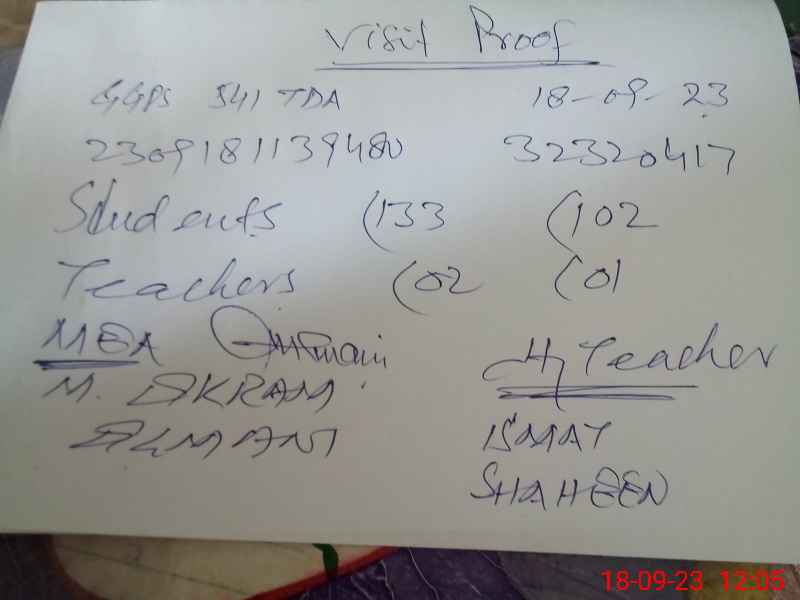 Visit Proof
GGPS 541 TDA 18-09-23
2309181139480 32320417
Students (133 (102
Teachers (02 (01
MEA
H/Teacher
M. IKRAM
ISMAT
SHAHEEN
18-09-23 12:05